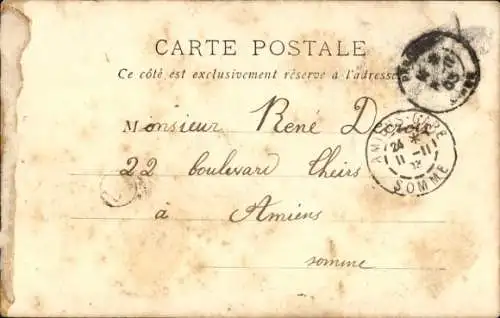 CARTE POSTALE
Ce côté est exclusivement réservé à l'adresse
Monsieur René Decroix
22 boulevard Theirs
à Amiens
somme
AMIENS-GARE
24
11 -11
SOMME